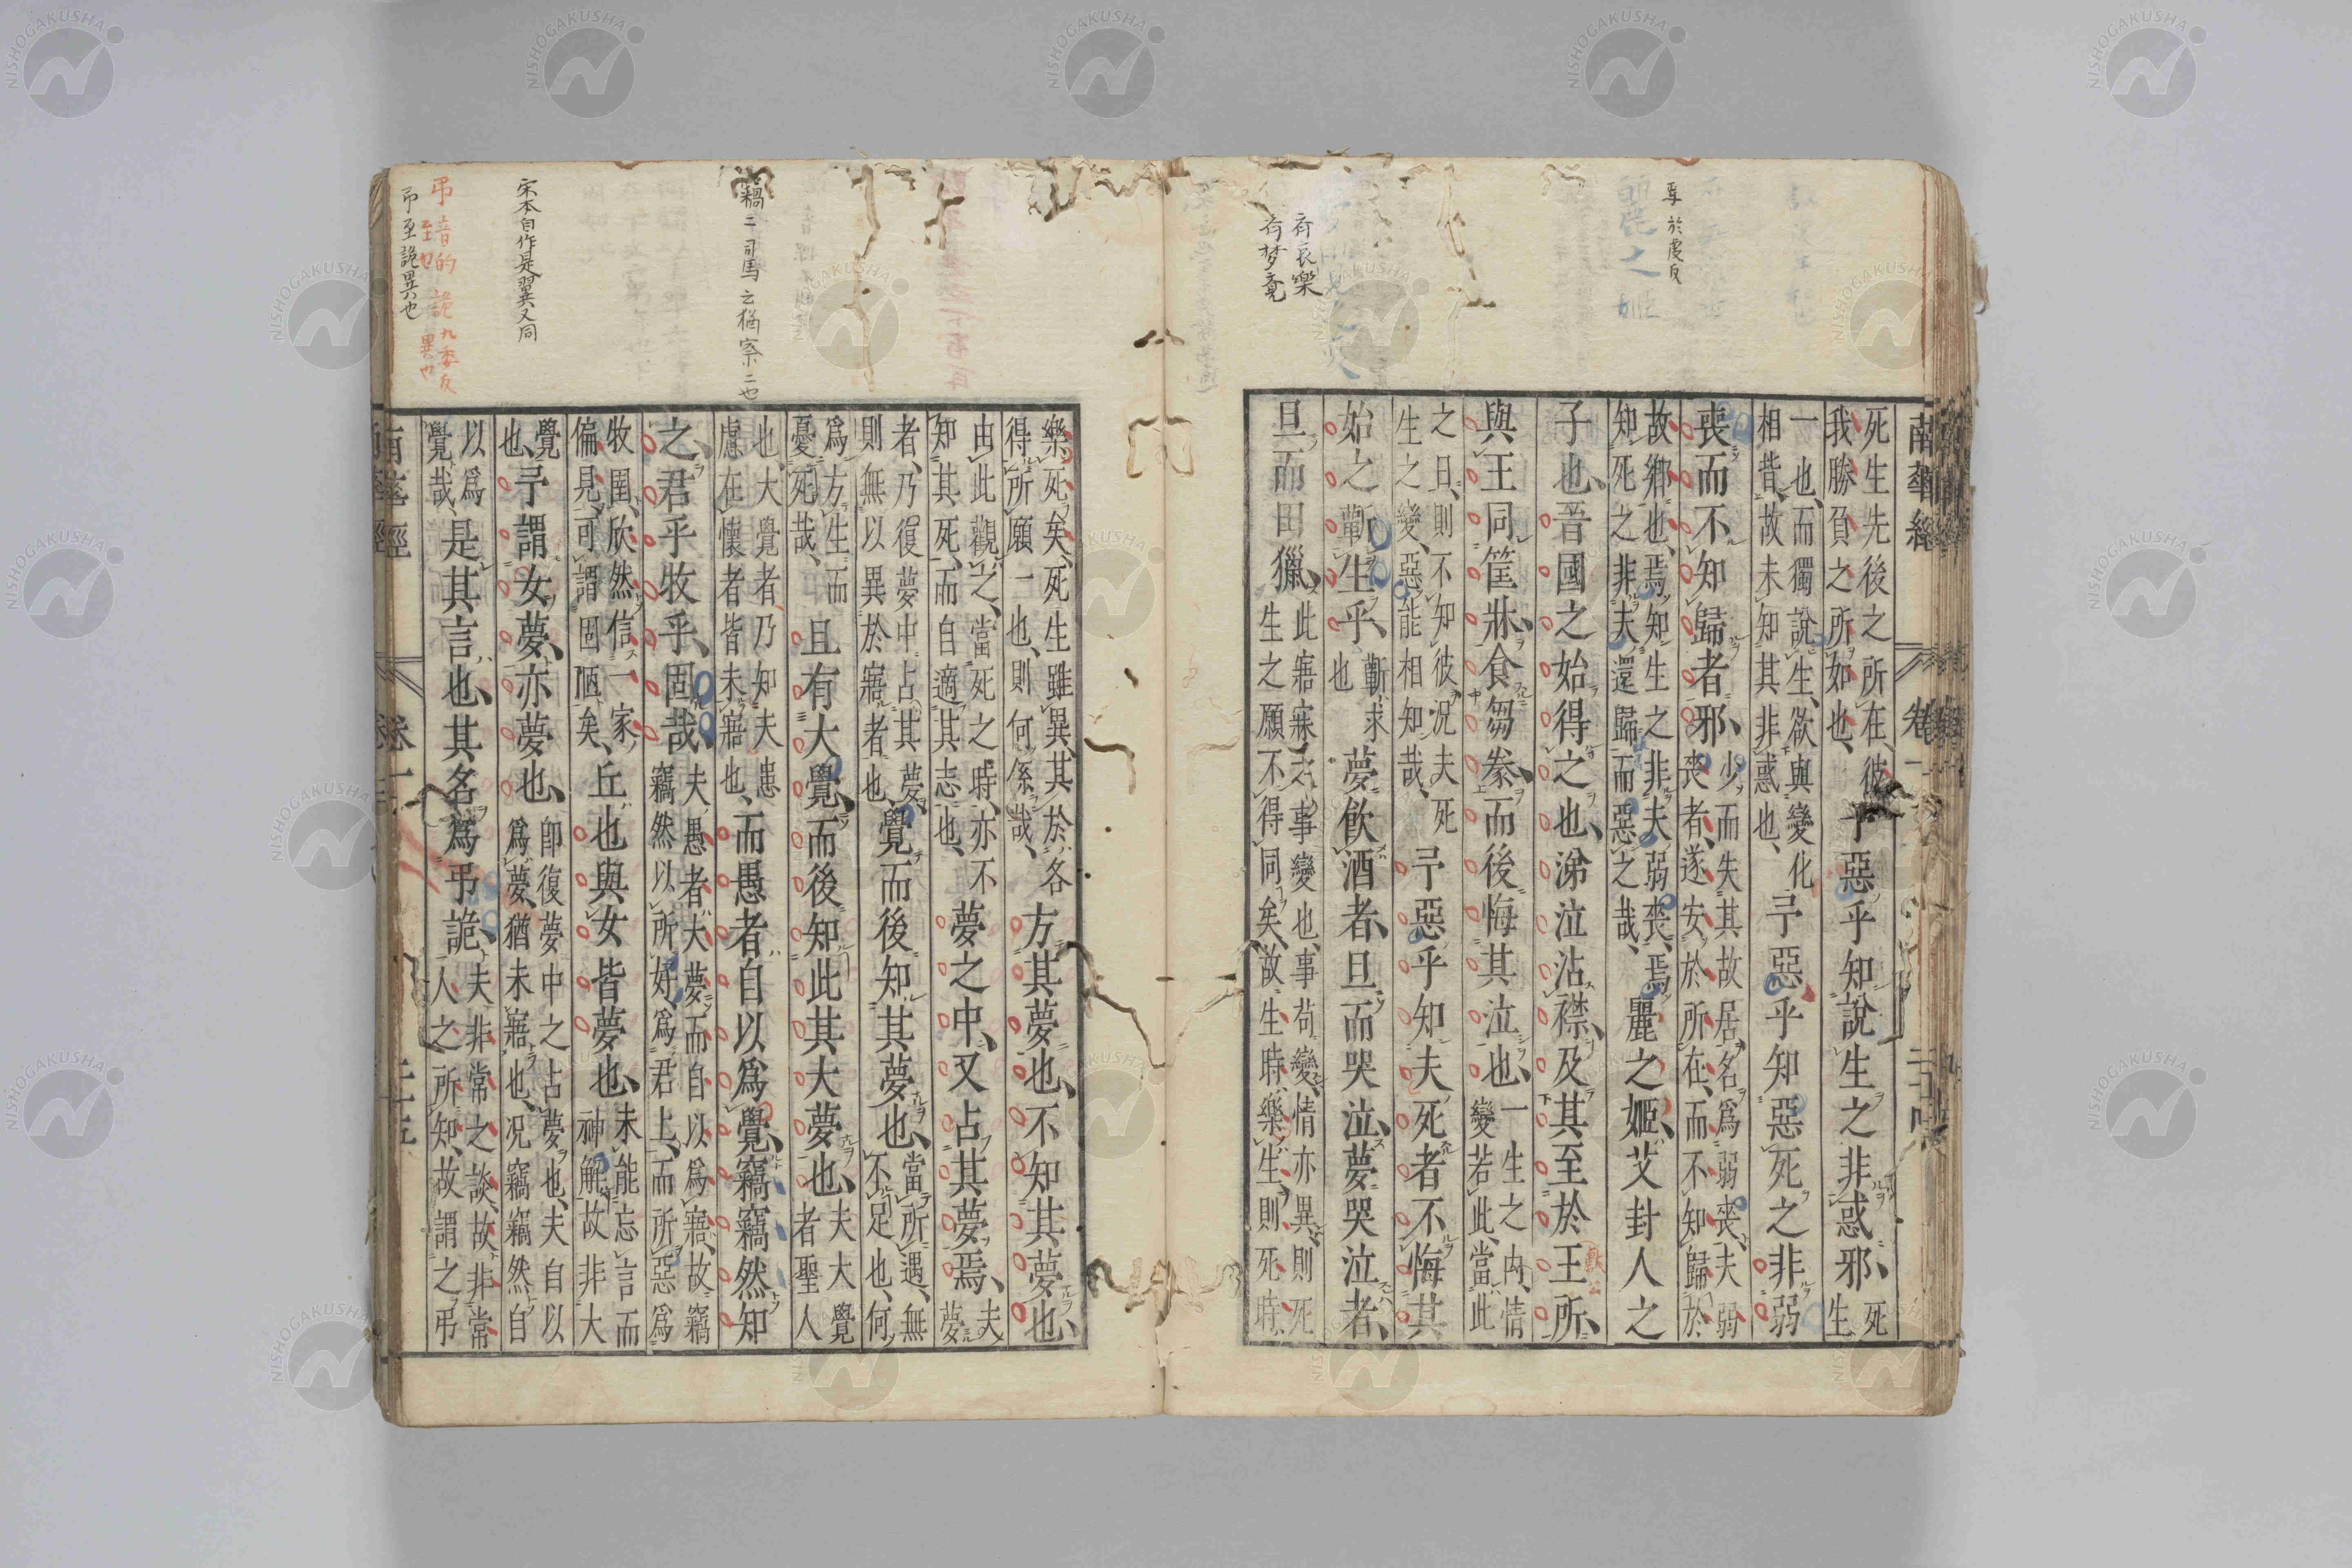 焉於虔反
齊哀樂
齊梦竟
南華經 卷一
死生先後之所在彼
我勝負之所如也
予惡乎知說生之非惑邪
死
生
一也而獨說生欲與變化
相背故未知其非惑也
予惡乎知惡死之非弱
喪而不知歸者邪
少而失其故居名爲弱喪夫弱
喪者遂安於所在而不知歸於
故鄉也焉知生之非夫弱喪焉
知死之非夫還歸而惡之哉
麗之姬艾封人之
子也晉國之始得之也涕泣沾襟及其至於王所
獻公
與王同筐牀食芻豢而後悔其泣也
一生之內情
變若此當此
之日則不知彼況夫死
生之變惡能相知哉
予惡乎知夫死者不悔其
始之蘄生乎
蘄求
也
夢飲酒者旦而哭泣夢哭泣者
旦而田獵
此寤寐之事變也事苟變情亦異則死
生之願不得同矣故生時樂生則死時
竊二司馬云猶察二也
宋本自作是翼又同
弔音的 詭九委反
至也 異也
弔至詭異也
樂死矣死生雖異其於各
得所願一也則何係哉
方其夢也不知其夢也
由此觀之當死之時亦不
知其死而自適其志也
夢之中又占其夢焉
夫
夢
者乃復夢中占其夢
則無以異於寤者也
覺而後知其夢也
當所遇無
不足也何
爲方生而
憂死哉
且有大覺而後知此其大夢也
夫大覺
者聖人
也大覺者乃知夫患
慮在懷者皆未寤也
而愚者自以爲覺竊竊然知
之君乎牧乎固哉
夫愚者夫夢而自以爲寤故竊
竊然以所好爲君上而所惡爲
牧圉欣然信一家
偏見可謂固陋矣
丘也與女皆夢也
未能忘言而
神解故非大
覺
也
予謂女夢亦夢也
卽復夢中之占夢也夫自以
爲夢猶未寤也況竊竊然自
以爲
覺哉
是其言也其名爲弔詭
夫非常之談故非常
人之所知故謂之弔
南華經 卷一 二十五